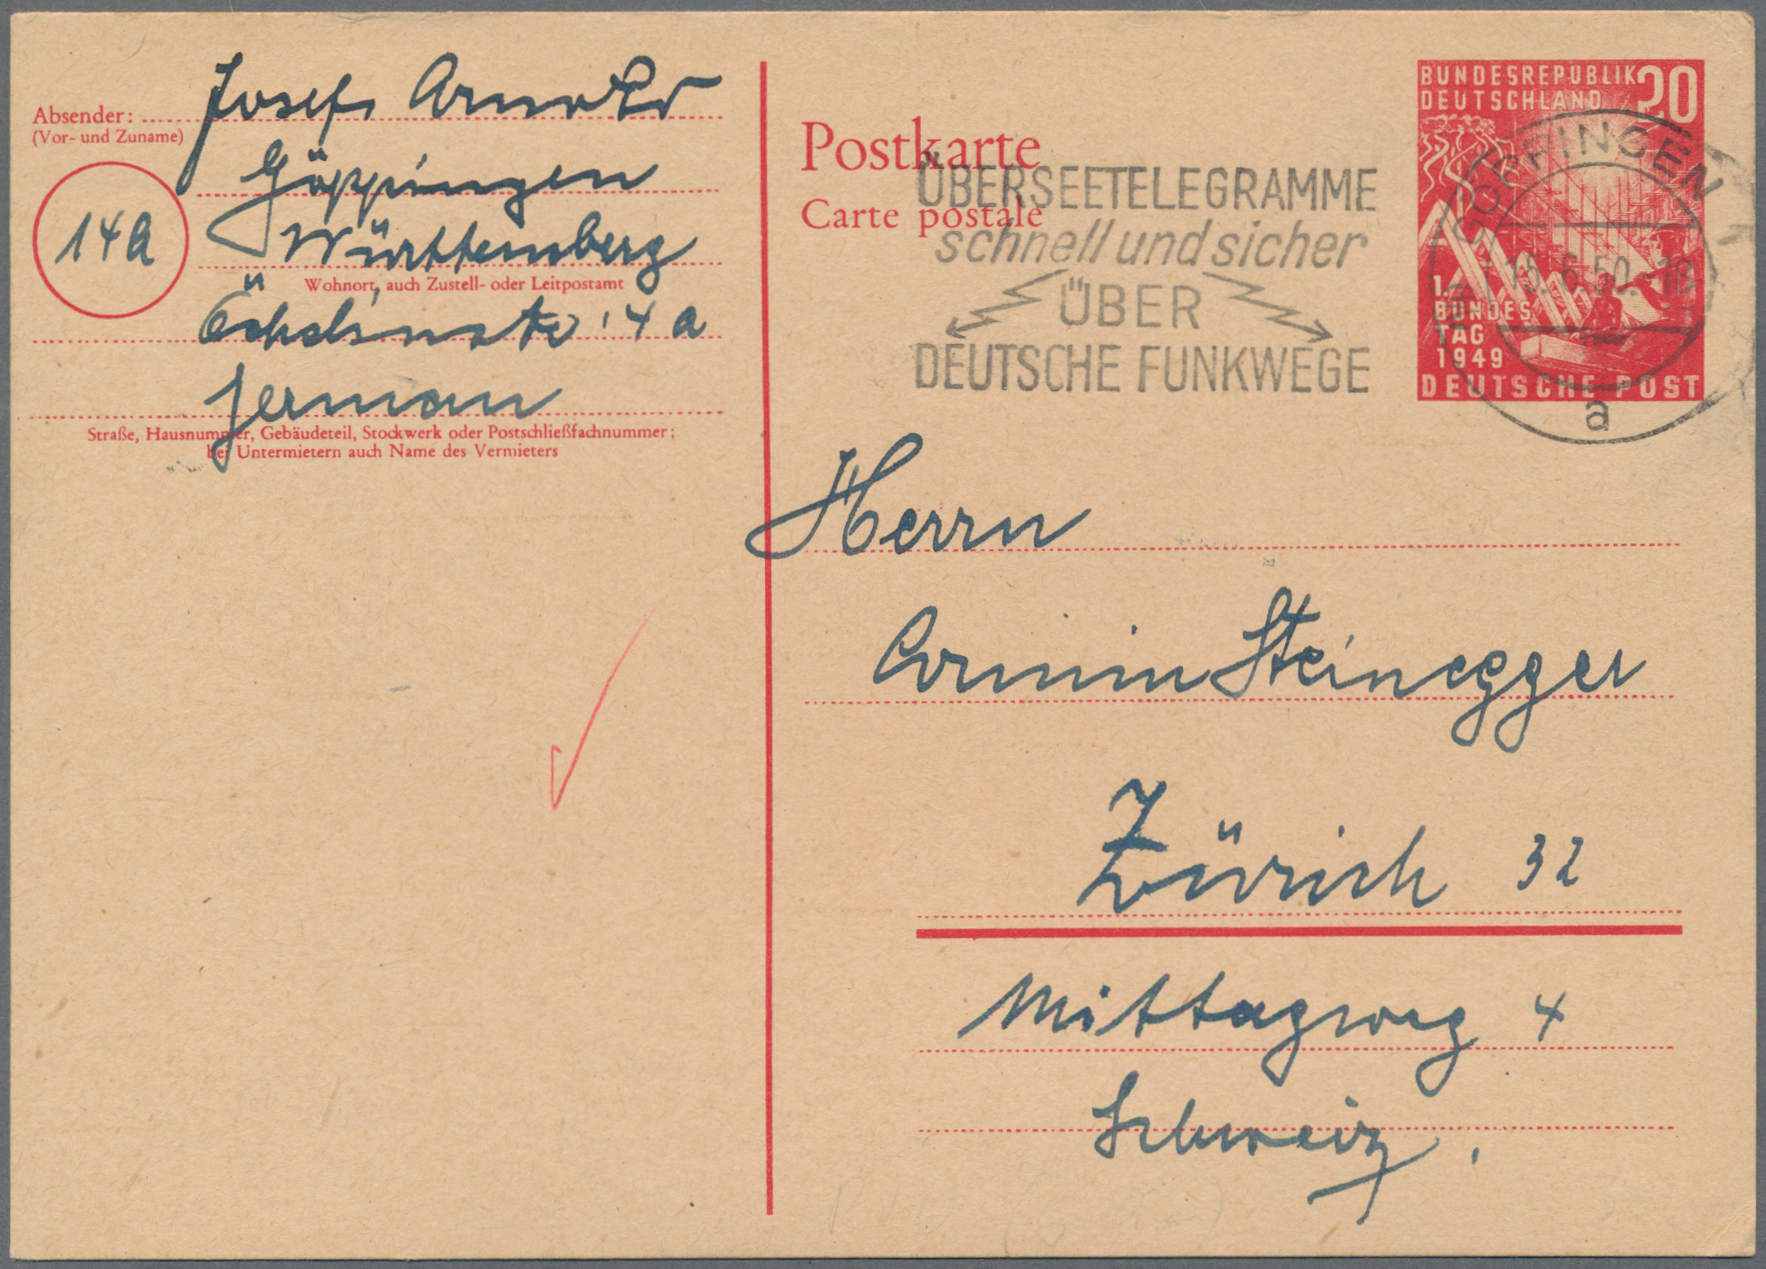 Absender:
(Vor- und Zuname)
Josef Arnold
Göppingen
14a
Württemberg
Wohnort, auch Zustell- oder Leitpostamt
4 a
German
Straße, Hausnummer, Gebäudeteil, Stockwerk oder Postschließfachnummer;
bei Untermietern auch Name des Vermieters
Postkarte
Carte postale
ÜBERSEETELEGRAMME
schnell und sicher
ÜBER
DEUTSCHE FUNKWEGE
BUNDESREPUBLIK 20
DEUTSCHLAND
1.
BUNDES
TAG
1949
DEUTSCHE POST
GÖPPINGEN
15.6.50.-18
a
Herrn
Armin Steinegger
Zürich 32
Mittagweg 4
Schweiz.